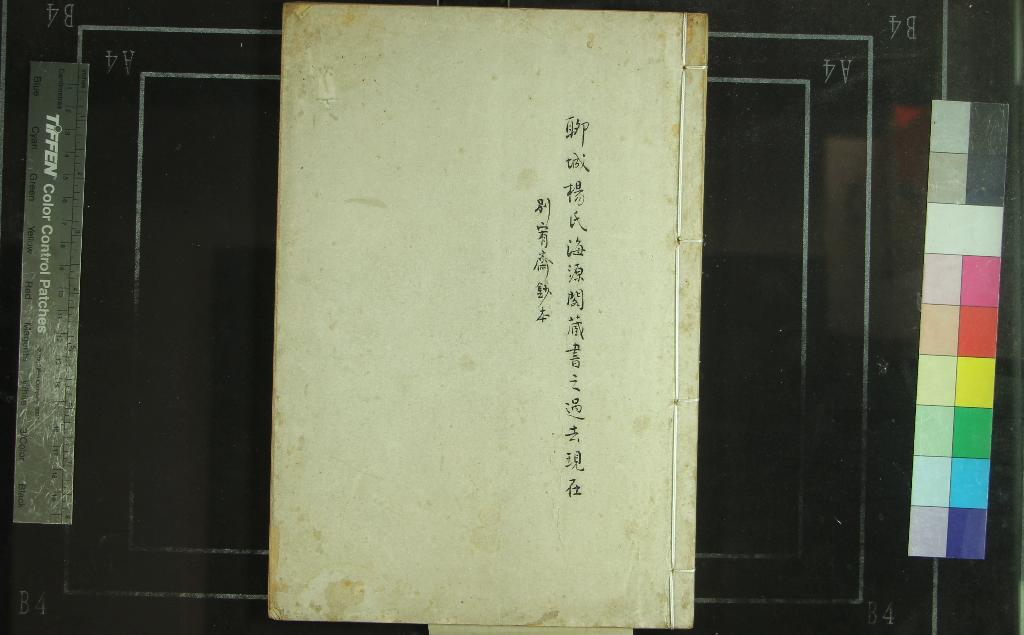 聊城楊氏海源閣藏書之過去現在
別宥齋鈔本
B4
A4
B4
A4
B4
B4
TIFFEN Color Control Patches
Blue
Cyan
Green
Yellow
Red
Magenta
White
3/Color
Black
Centimetres